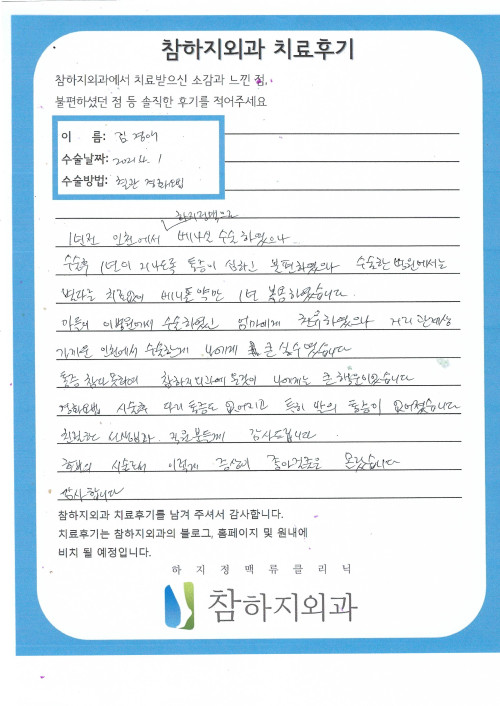 참하지외과 치료후기
참하지외과에서 치료받으신 소감과 느낀 점,
불편하셨던 점 등 솔직한 후기를 적어주세요
이 름: 김경애
수술날짜: 2021. 1
수술방법: 혈관 경화요법
하지정맥으로
1년전 인천에서 베나실 수술 하였으나
수술후 1년이 지나도록 통증이 심하고 불편하였으나 수술한 병원에서는
별다른 치료없이 베니톨 약만 1년 복용하였습니다.
아들이 이병원에서 수술하였고 엄마에게 권유하였으나 거리 관계상
가까운 인천에서 수술한게 나에게 큰 실수였습니다
통증 참다못하여 참하지외과에 온것이 나에게는 큰 행운이었습니다
경화요법 시술후 다리 통증도 없어지고 특히 밤의 통증이 없어졌습니다
친절하신 선생님과 직원분들께 감사드립니다
시술로 이렇게 증상이 좋아질줄은 몰랐습니다
감사합니다
참하지외과 치료후기를 남겨 주셔서 감사합니다.
치료후기는 참하지외과의 블로그, 홈페이지 및 원내에
비치 될 예정입니다.
하지정맥류클리닉
참하지외과